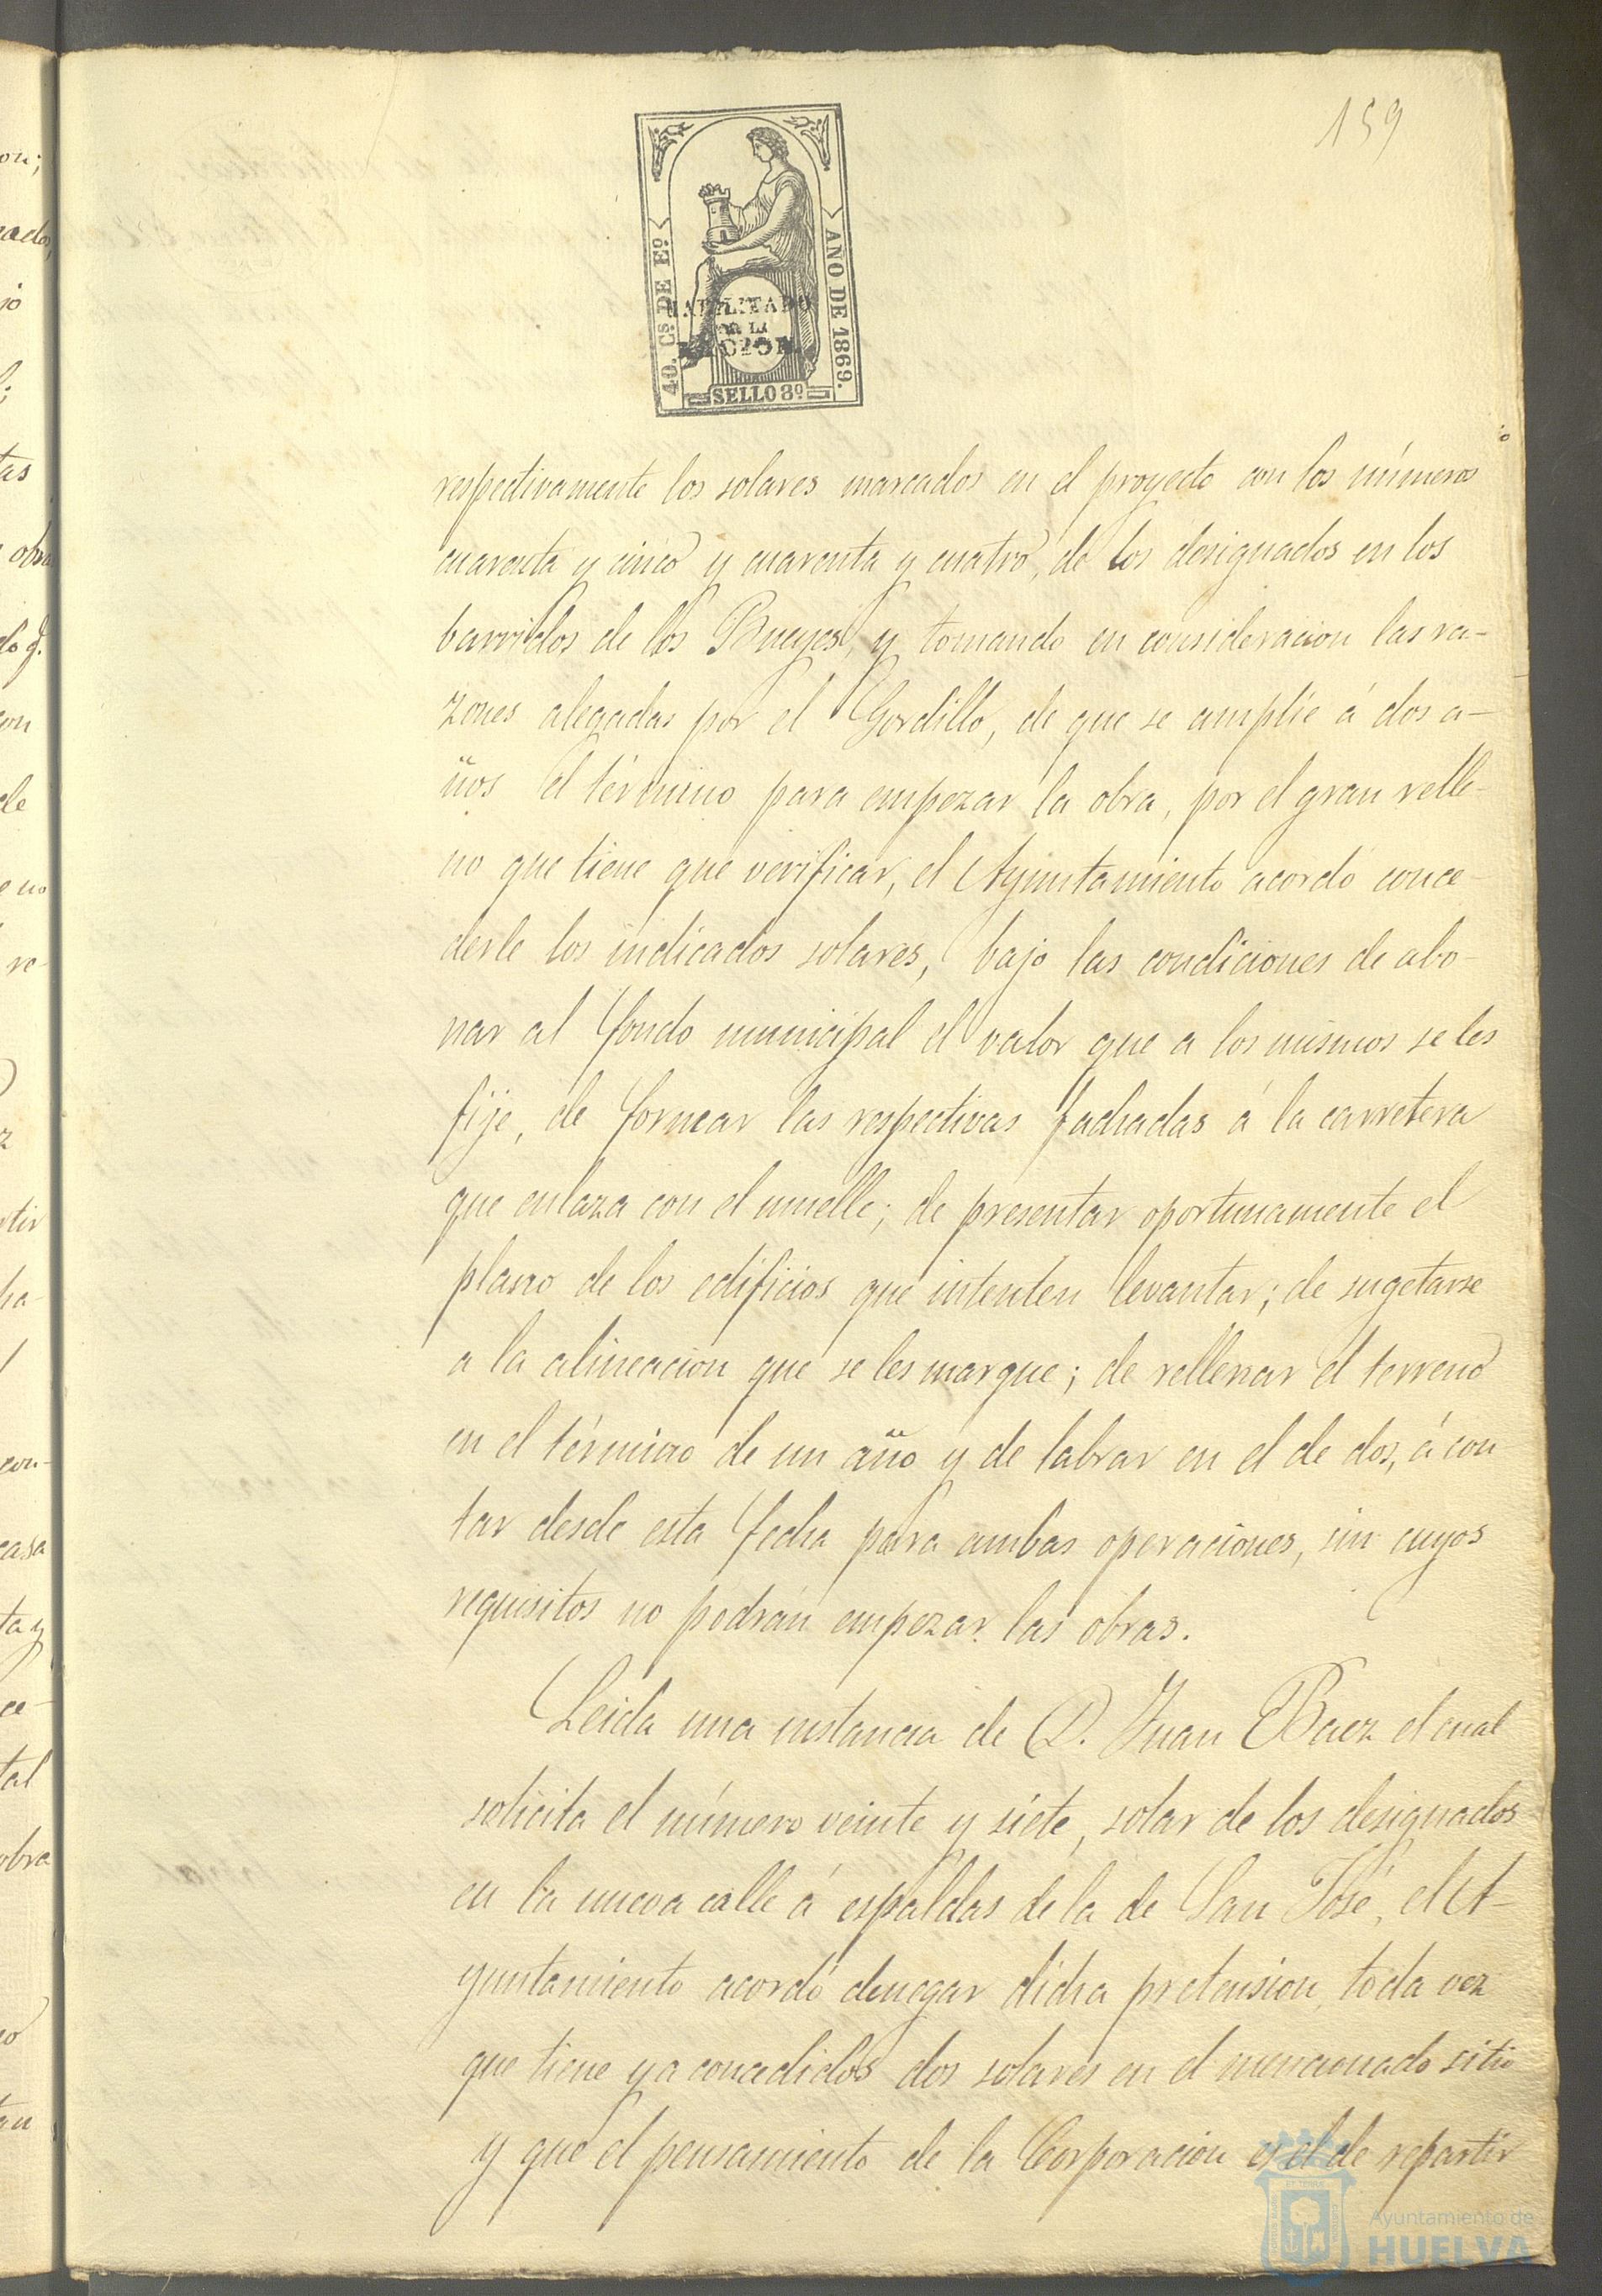 159
40. Cs. DE Eo.
AÑO DE 1869.
HABILITADO
POR LA
NACION.
SELLO 8º
respectivamente los solares marcados en el proyecto con los números
cuarenta y cinco y cuarenta y cuatro, de los designados en los
barridos de los Bueyes, y tomando en consideracion las ra-
zones alegadas por el Gordillo, de que se amplíe á dos a-
ños el término para empezar la obra, por el gran relle-
no que tiene que verificar, el Ayuntamiento acordó conce-
derle los indicados solares, bajo las condiciones de abo-
nar al fondo municipal el valor que a los mismos se les
fije, de formar las respectivas fachadas á la carretera
que enlaza con el muelle; de presentar oportunamente el
plano de los edificios que intenten levantar; de sugetarse
a la alineacion que se les marque; de rellenar el terreno
en el término de un año y de labrar en el de dos, á con
tar desde esta fecha para ambas operaciones, sin cuyos
requisitos no podrán empezar las obras.
Leida una instancia de D. Juan Baez el cual
solicita el número veinte y siete, solar de los designados
en la nueva calle á espaldas de la de San José, el A-
yuntamiento acordó denegar dicha pretension, toda vez
que tiene ya concedidos dos solares en el mencionado sitio
y que el pensamiento de la Corporacion es el de repartir
Ayuntamiento de
HUELVA